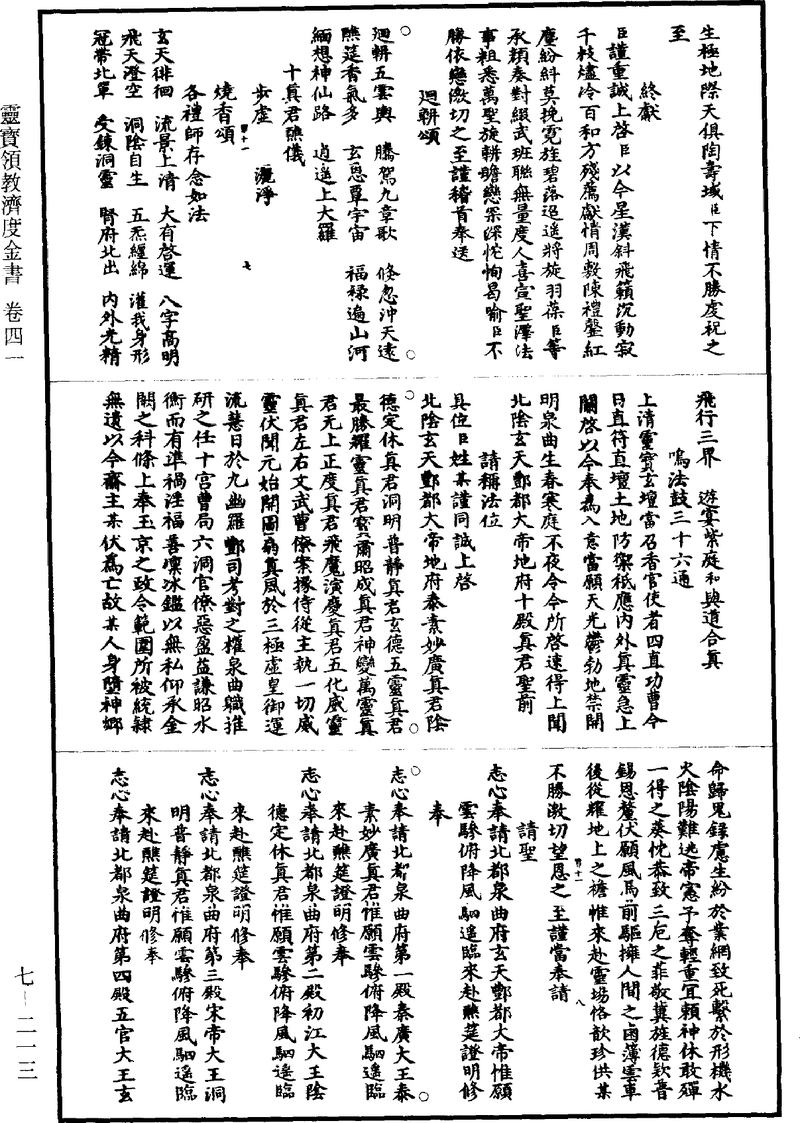 生極地際天俱陶壽域臣下情不勝虔祝之
至
終獻
臣謹重誠上啓臣以今星漢斜飛籟沉動寂
千枝爐冷百和方殘薦獻情周敷陳禮罄紅
塵紛糾莫挽霓旌碧落迢遙將旋羽葆臣等
承顏奏對綴武班聯無量度人喜宣聖澤法
事粗悉萬聖旋軿瞻戀罙深忱恂曷喻臣不
勝依戀激切之至謹稽首奉送
迴軿頌
迴軿五雲輿　騰駕九章歌　倏忽沖天遠
醮筵香氣多　玄恩覃宇宙　福祿遍山河
緬想神仙路　逍遙上大羅
十真君醮儀
步虛　灑淨
燒香頌
各禮師存念如法
玄天徘徊　流景上清　大有啓運　八字高明
飛天澄空　洞陰自生　五炁纏綿　灌我身形
冠帶北單　受鍊洞靈　腎府北出　內外光精
飛行三界　遊宴紫庭　和與道合真
鳴法鼓三十六通
上清靈寶玄壇當召香官使者四直功曹今
日直符直壇土地防禦祇應內外真靈急上
關啓以今奉為入意當願天光鬱勃地禁開
明泉曲生春寒庭不夜令今所啓速得上聞
北陰玄天酆都大帝地府十殿真君聖前
請稱法位
具位臣姓某謹同誠上啓
北陰玄天酆都大帝地府泰素妙廣真君陰
德定休真君洞明普靜真君玄德五靈真君
最勝耀靈真君寶肅昭成真君神變萬靈真
君无上正度真君飛魔演慶真君五化威靈
真君左右文武曹僚案掾侍從主執一切威
靈伏聞元始開圖扇真風於三極虛皇御運
流慧日於九幽羅酆司考對之權泉曲職推
研之任十宮曹局六洞官僚惡盈益謙昭水
衡而有準禍淫福善凜冰鑑以無私仰承金
闕之科條上奉玉京之政令範圍所被統隸
無遺以今齋主某伏為亡故某人身墮神鄉
命歸鬼籙慮生紛於業網致死繫於形機水
火陰陽難逃帝憲予奪輕重宜賴神休敢殫
一得之葵忱恭致三卮之菲敬冀旌德欵普
錫恩釐伏願風馬前驅擁人間之鹵薄雲車
後從耀地上之襜帷來赴靈場恪歆珍供某
不勝激切望恩之至謹當奉請
請聖
志心奉請北都泉曲府玄天酆都大帝惟願
雲驂俯降風駟遙臨來赴醮筵證明修
奉
志心奉請北都泉曲府第一殿秦廣大王泰
素妙廣真君惟願雲驂俯降風駟遙臨
來赴醮筵證明修奉
志心奉請北都泉曲府第二殿初江大王陰
德定休真君惟願雲驂俯降風駟遙臨
來赴醮筵證明修奉
志心奉請北都泉曲府第三殿宋帝大王洞
明普靜真君惟願雲驂俯降風駟遙臨
來赴醮筵證明修奉
志心奉請北都泉曲府第四殿五官大王玄
靈寶領教濟度金書　卷四一
七—二一三
七
八